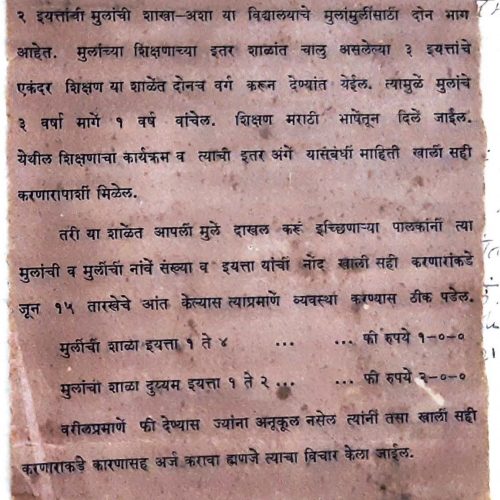 २ इयत्तांची मुलांची शाखा-अशा या विद्यालयाचे मुलांमुलींसाठी दोन भाग
आहेत. मुलांच्या शिक्षणाच्या इतर शाळांत चालु असलेल्या ३ इयत्तांचे
एकंदर शिक्षण या शाळेंत दोनच वर्ग करून देण्यांत येईल. त्यामुळें मुलांचे
३ वर्षा मागें १ वर्ष वांचेल. शिक्षण मराठी भाषेंतून दिलें जाईल.
येथील शिक्षणाचा कार्यक्रम व त्याची इतर अंगें यासंबंधीं माहिती खालीं सही
करणारापाशीं मिळेल.
तरी या शाळेंत आपलीं मुलें दाखल करूं इच्छिणाऱ्या पालकांनीं त्या
मुलांची व मुलींचीं नांवें संख्या व इयत्ता यांची नोंद खालीं सही करणारांकडे
जून १५ तारखेचे आंत केल्यास त्याप्रमाणें व्यवस्था करण्यास ठीक पडेल.
मुलींची शाळा इयत्ता १ ते ४ ... ... फी रुपये १-०-०
मुलांची शाळा दुय्यम इयत्ता १ ते २ ... ... फी रुपये २-०-०
वरीलप्रमाणें फी देण्यास ज्यांना अनूकूल नसेल त्यांनीं तसा खालीं सही
करणाराकडे कारणासह अर्ज करावा ह्मणजे त्याचा विचार केला जाईल.